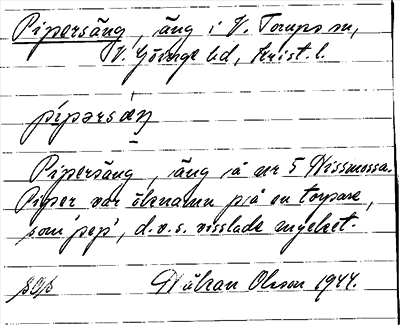 Pipersäng, äng i V. Torups sn,
V. Göinge hd, Krist. l.
pìpərsæŋ
Pipersäng, äng å nr 5 Nissmossa.
Piper var öknamn på en torpare,
som 'pep', d.v.s. visslade mycket.
Håkan Olsson 1944.